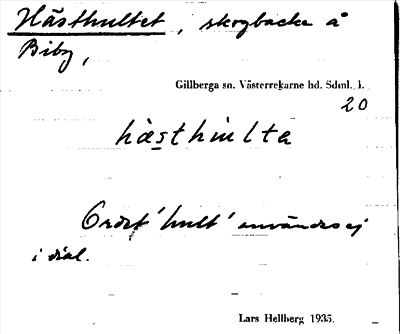 Hästhultet, skogbacke å
Biby,
Gillberga sn. Västerrekarne hd. Sdml. l.
20
hàsthulta
Ordet 'hult' användes ej
i dial.
Lars Hellberg 1935.